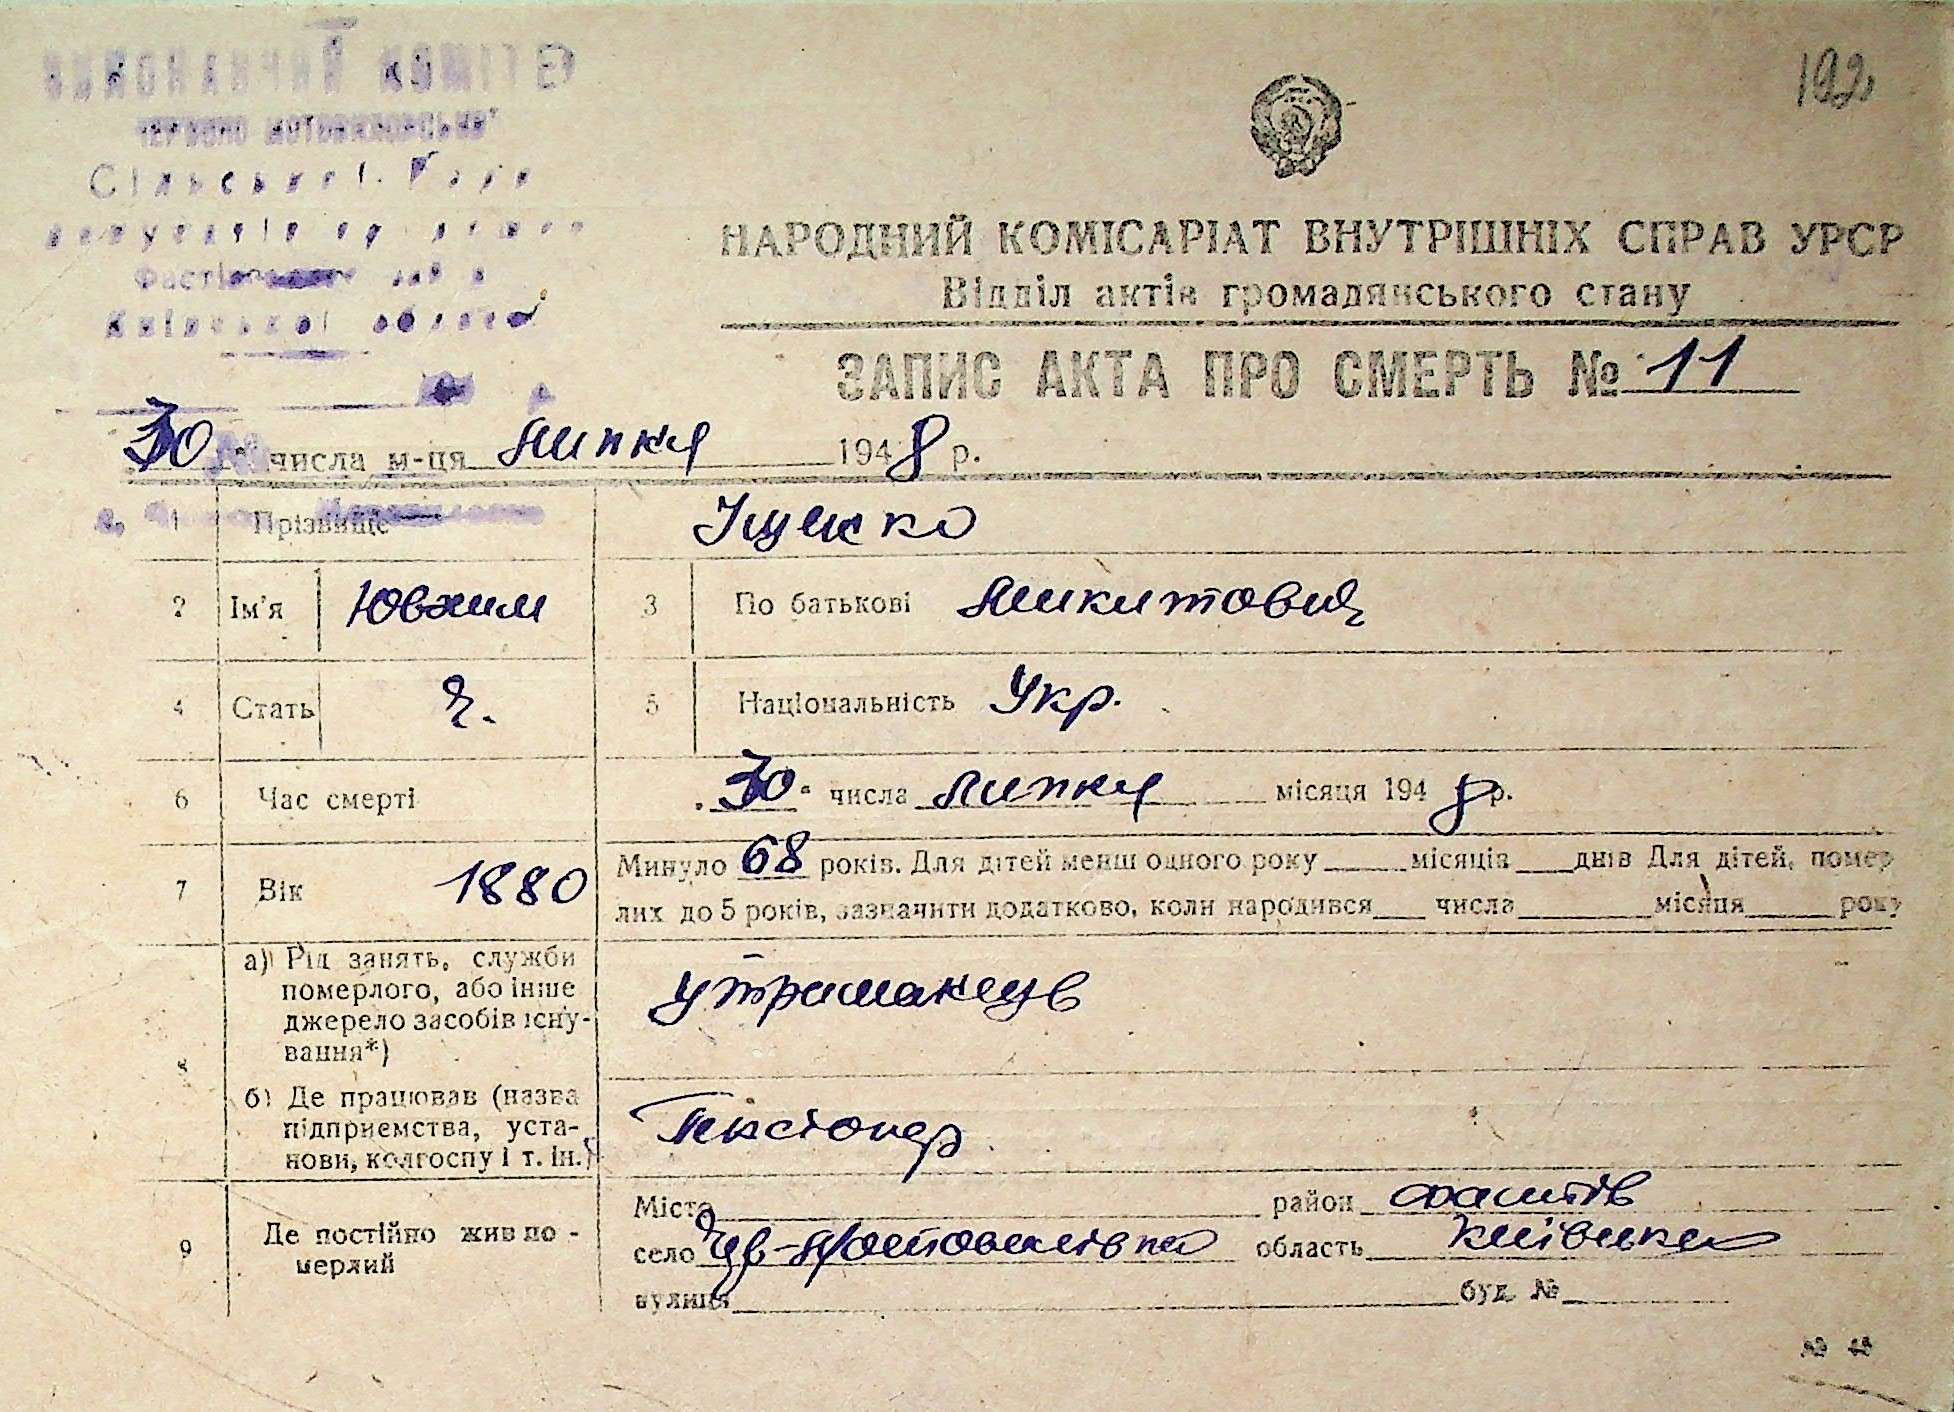 192
Сільської Ради
Київської області
НАРОДНИЙ КОМІСАРІАТ ВНУТРІШНІХ СПРАВ УРСР
Відділ актів громадянського стану
ЗАПИС АКТА ПРО СМЕРТЬ № 11
30 числа м-ця липня 1948 р.
1 Прізвище Іщенко
2 Ім'я Ювхим 3 По батькові Микитович
4 Стать ч. 5 Національність Укр.
6 Час смерті „30" числа липня місяця 1948 р.
7 Вік 1880 Минуло 68 років. Для дітей менш одного року місяців днів Для дітей, помер
лих до 5 років, зазначити додатково, коли народився числа місяця року
8 а) Рід занять, служби
померлого, або інше
джерело засобів існу-
вання*) утриманець
б) Де працював (назва
підприємства, уста-
нови, колгоспу і т. ін.) Пенсіонер
9 Де постійно жив по-
мерлий
Місто район Фастів
село область Київська
вулиця буд. №
№ 48